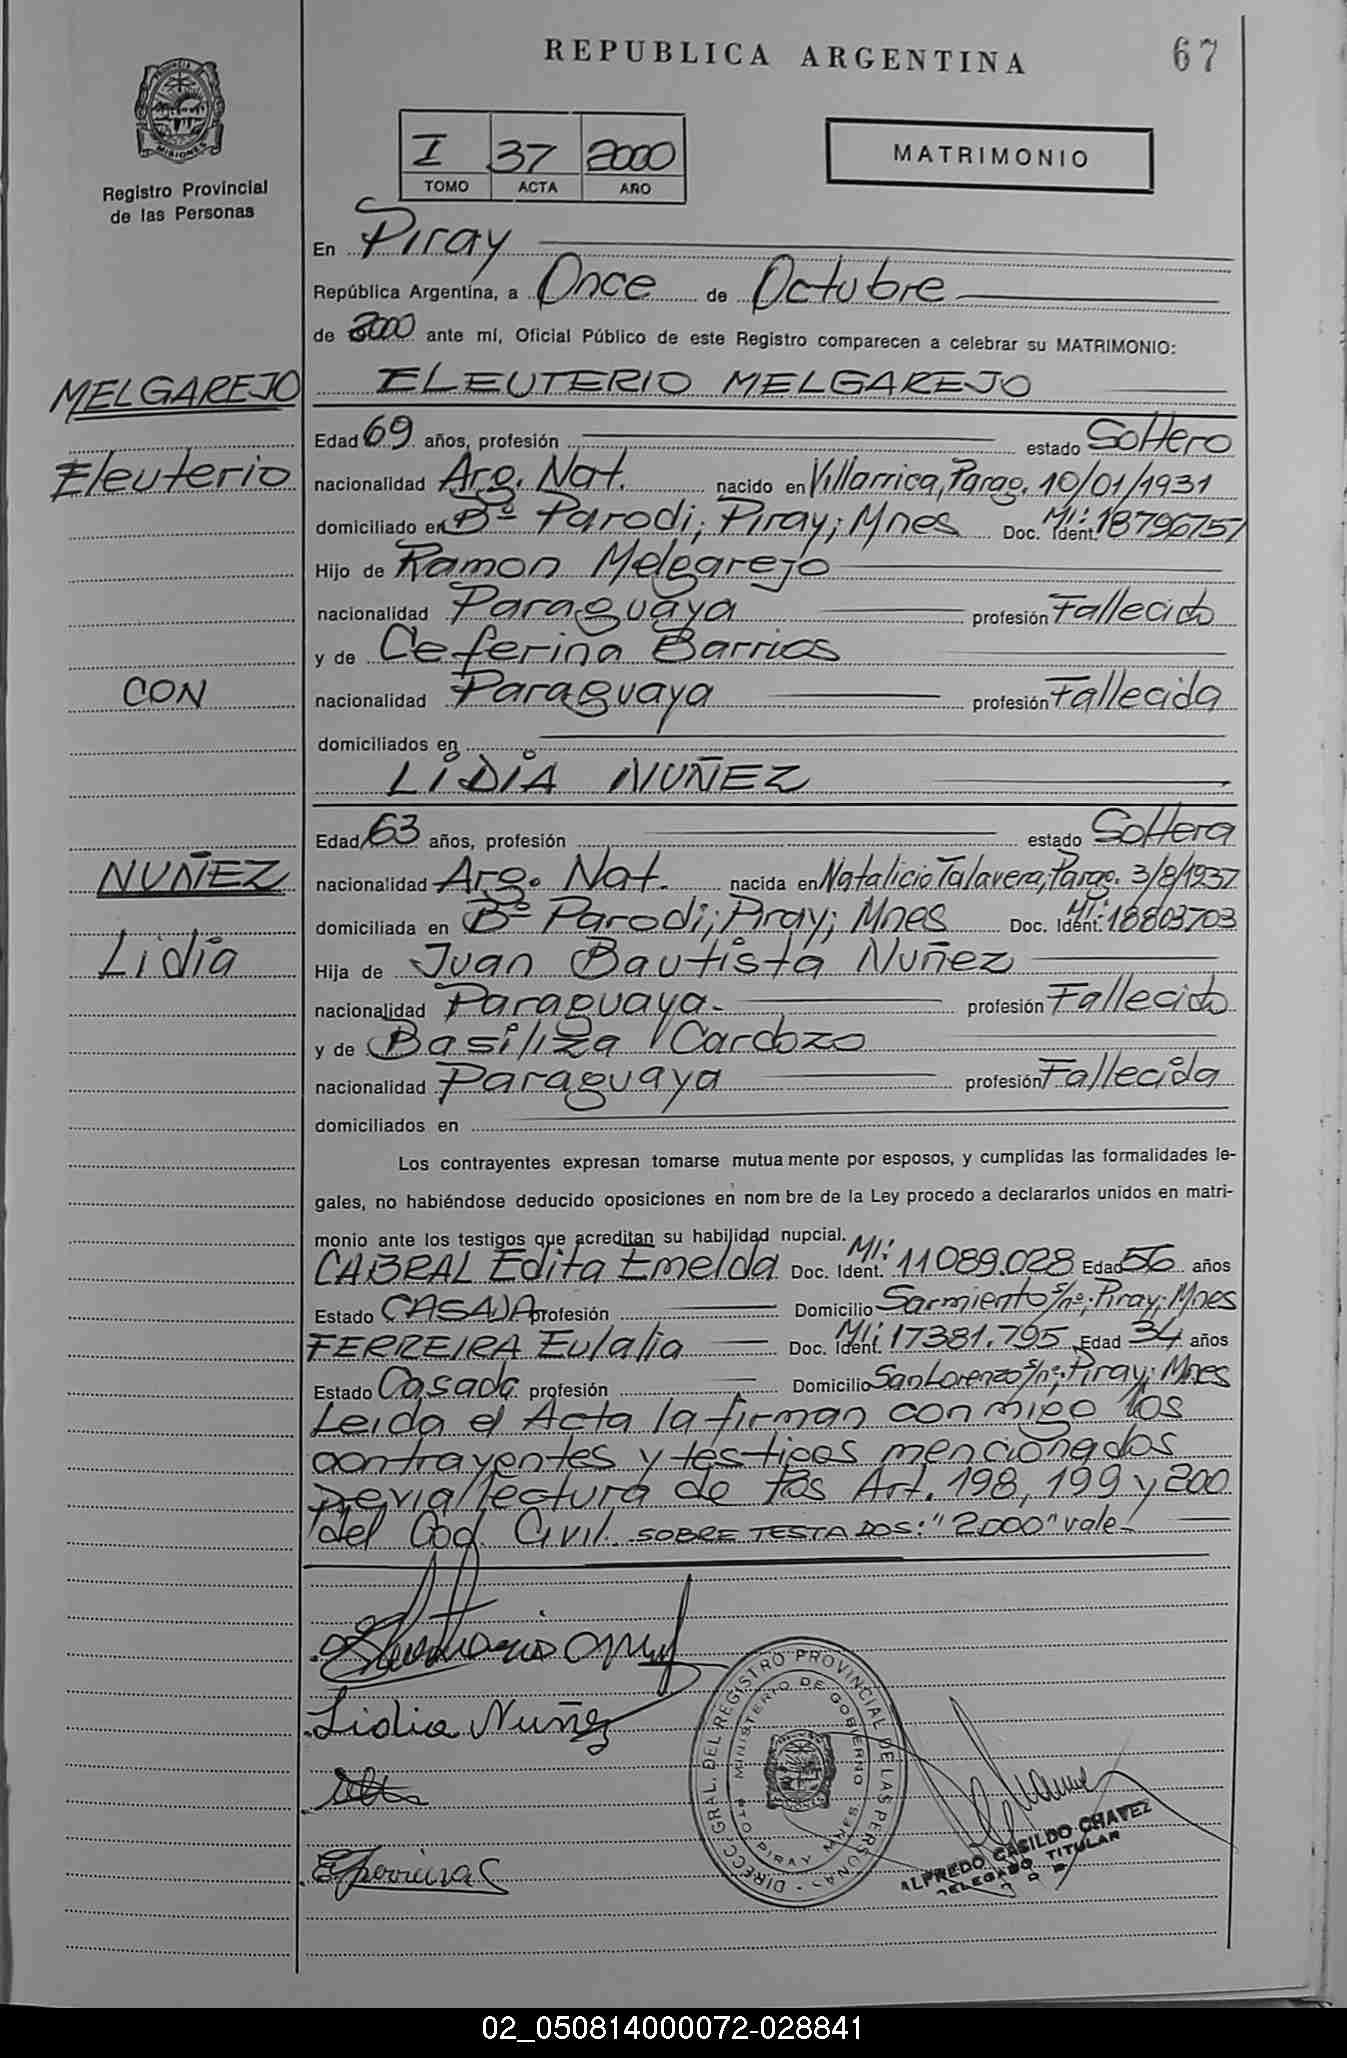 REPUBLICA ARGENTINA
67
MISIONES
Registro Provincial
de las Personas
I 37 2000
TOMO ACTA AÑO
MATRIMONIO
En Piray
República Argentina, a Once de Octubre
de 2000 ante mí, Oficial Público de este Registro comparecen a celebrar su MATRIMONIO:
MELGAREJO
Eleuterio
CON
NUÑEZ
Lidia
ELEUTERIO MELGAREJO
Edad 69 años, profesión estado Soltero
nacionalidad Arg. Nat. nacido en Villarrica, Parag. 10/01/1931
domiciliado en Bº Parodi; Piray; Mnes Doc. Ident. MI: 18796757
Hijo de Ramon Melgarejo
nacionalidad Paraguaya profesión Fallecido
y de Ceferina Barrios
nacionalidad Paraguaya profesión Fallecida
domiciliados en
LIDIA NUÑEZ
Edad 63 años, profesión estado Soltera
nacionalidad Arg. Nat. nacida en Natalicio Talavera, Parag. 3/8/1937
domiciliada en Bº Parodi; Piray; Mnes Doc. Ident. MI: 18803703
Hija de Juan Bautista Nuñez
nacionalidad Paraguaya. profesión Fallecido
y de Basiliza Cardozo
nacionalidad Paraguaya profesión Fallecida
domiciliados en
Los contrayentes expresan tomarse mutuamente por esposos, y cumplidas las formalidades le-
gales, no habiéndose deducido oposiciones en nombre de la Ley procedo a declararlos unidos en matri-
monio ante los testigos que acreditan su habilidad nupcial.
CABRAL Edita Emelda Doc. Ident. MI: 11089.028 Edad 56 años
Estado CASADA profesión Domicilio Sarmiento s/nº; Piray; Mnes
FERREIRA Eulalia Doc. Ident. MI: 17381.795 Edad 34 años
Estado Casada profesión Domicilio San Lorenzo s/nº; Piray; Mnes
Leida el Acta la firman conmigo los
contrayentes y testigos mencionados
previa lectura de los Art. 198, 199 y 200
del Cod. Civil. SOBRE TESTADOS: "2000" vale!
Lidia Nuñez
DIRECC. GRAL. DEL REGISTRO PROVINCIAL DE LAS PERSONAS
MINISTERIO DE GOBIERNO
PTO PIRAY MNES
ALFREDO CASILDO CHAVEZ
DELEGADO TITULAR
02_050814000072-028841